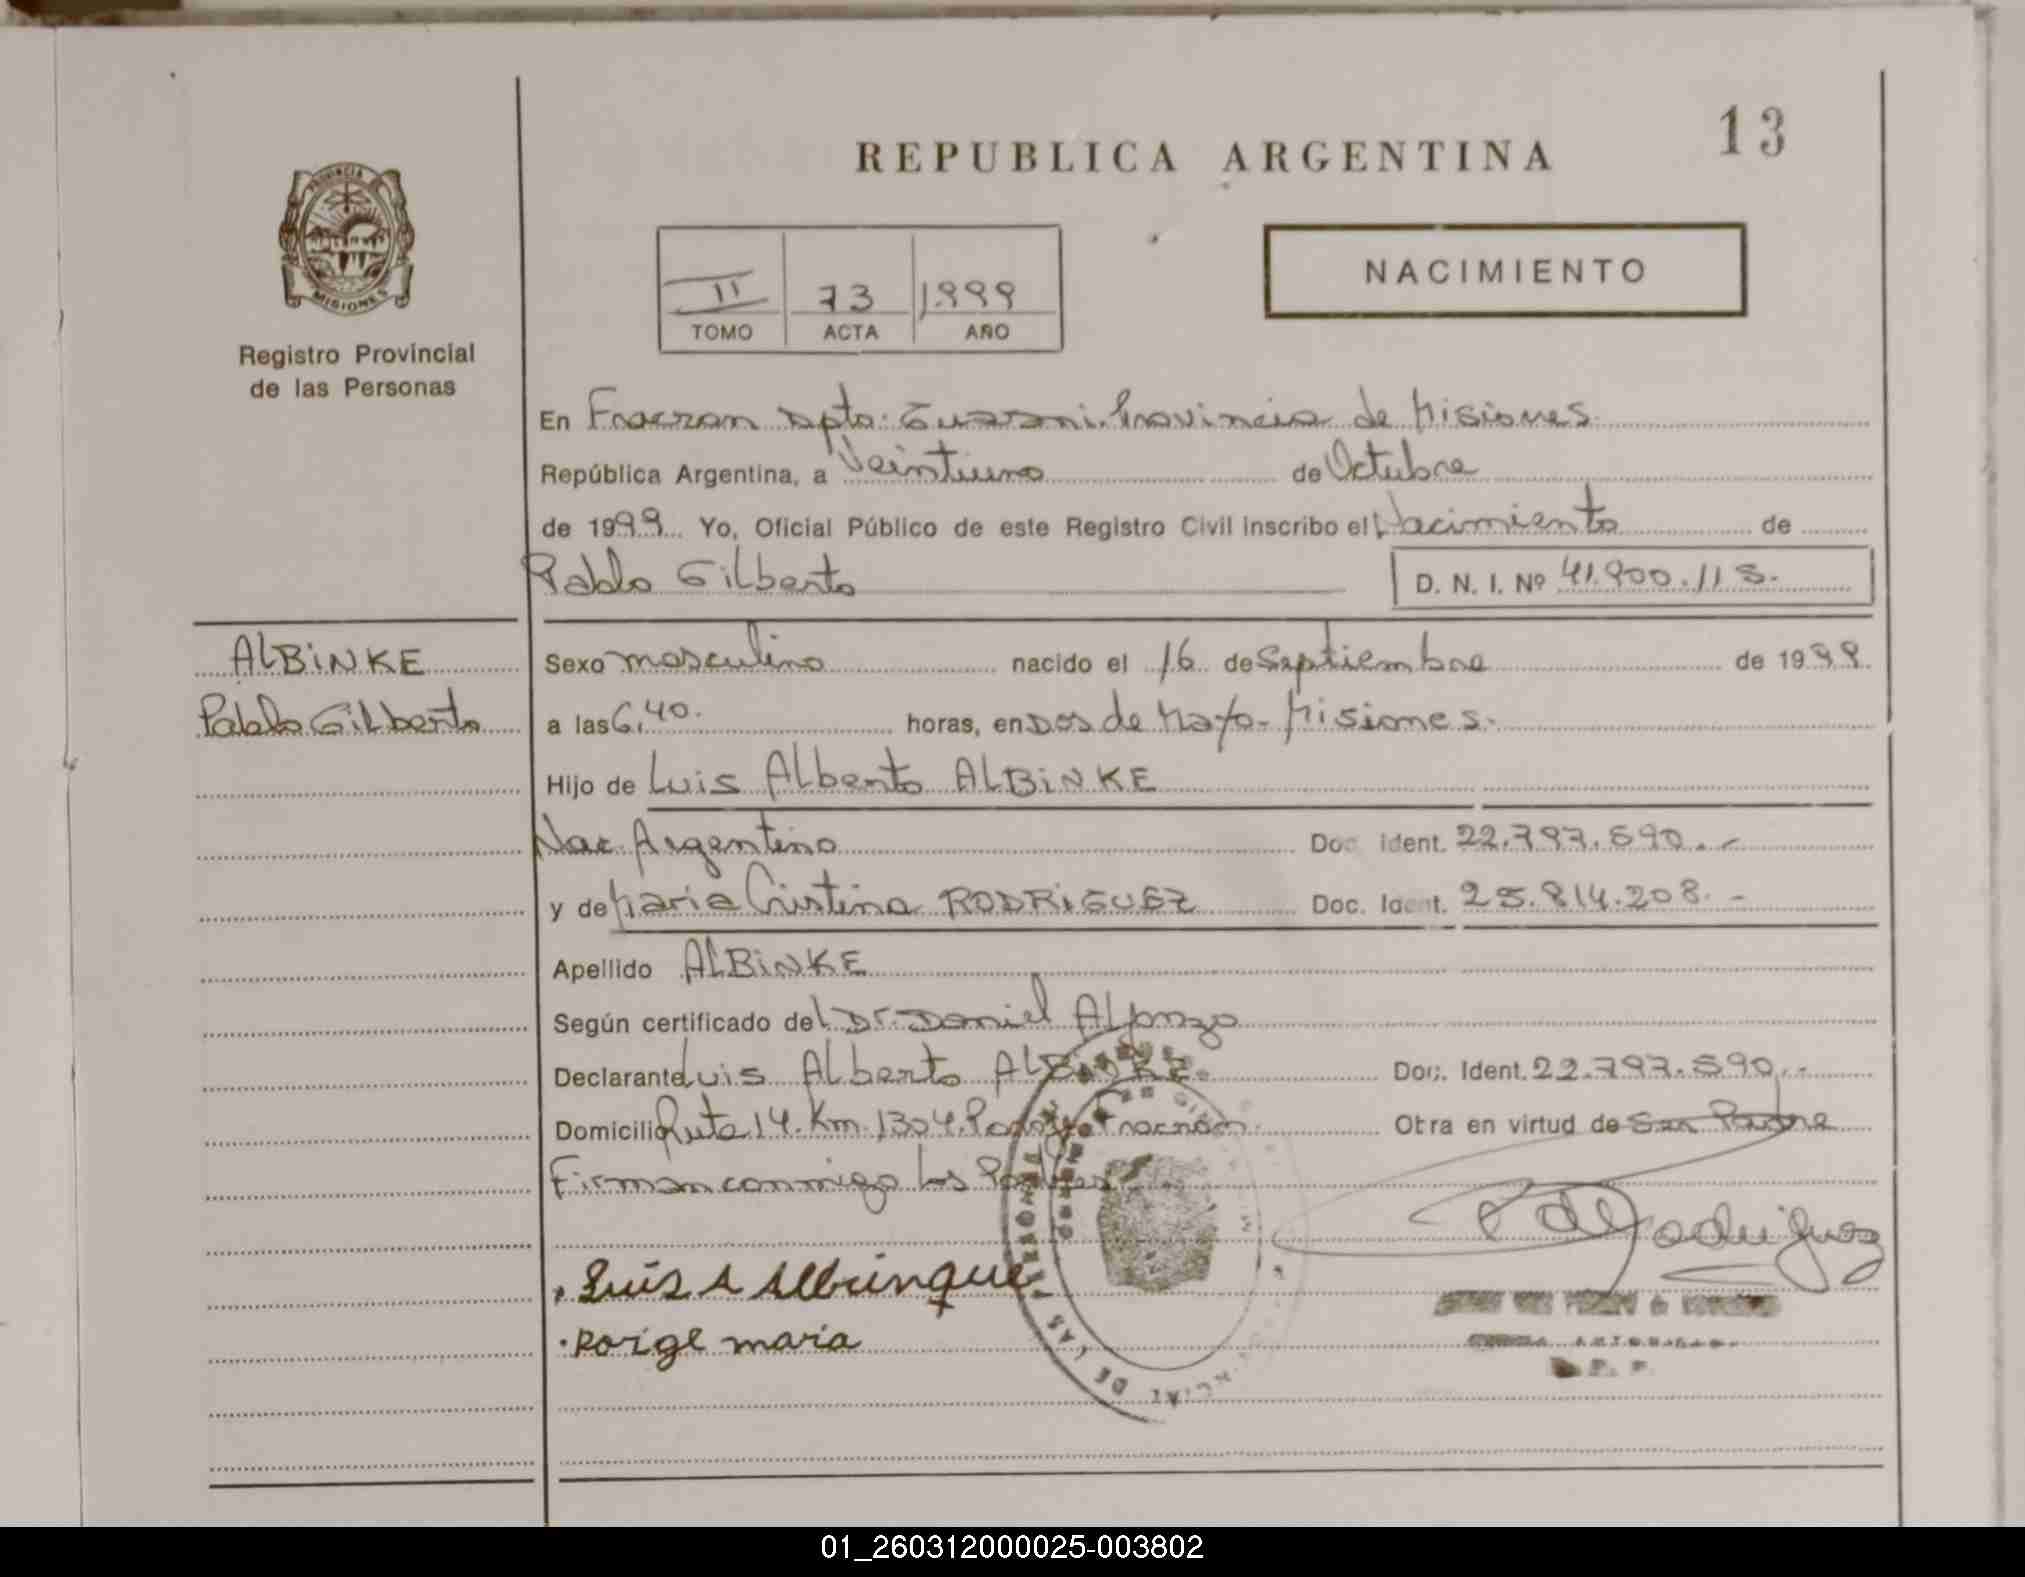 13
REPUBLICA ARGENTINA
PROVINCIA DE
MISIONES
Registro Provincial
de las Personas
II 73 1.999
TOMO ACTA AÑO
NACIMIENTO
En Fracran Dpto. Guarani. Provincia de Misiones
República Argentina, a Veintiuno de Octubre
de 1999 Yo, Oficial Público de este Registro Civil inscribo el Nacimiento de
Pablo Gilberto D. N. I. Nº 41.900.115.
ALBiNKE
Pablo Gilberto
Sexo masculino nacido el 16 de Septiembre de 1999
a las 6,40. horas, en Dos de Mayo - Misiones.
Hijo de Luis Alberto ALBiNKE
Nac. Argentino Doc. Ident. 22.797.590.-
y de Maria Cristina RODRiGUEZ Doc. Ident. 25.814.208.-
Apellido ALBiNKE
Según certificado del Dr. Daniel Alfonzo
Declarante Luis Alberto ALBiNKE. Doc. Ident. 22.797.590.-
Domicilio Ruta 14. Km. 1304. Fracrán Otra en virtud de Ser Padre
Firman conmigo los Padres
Luis A Albinque
Roige maria
DE LAS
01_260312000025-003802